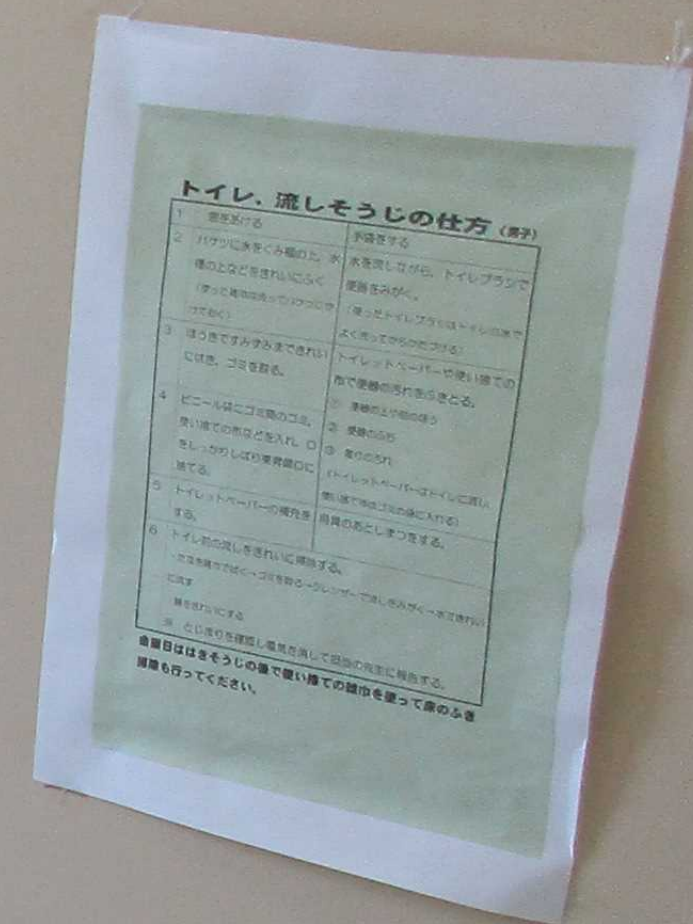 トイレ、流しそうじの仕方（男子）
1 窓をあける
手袋をする
2 バケツに水をくみ棚の上、水
槽の上などをきれいにふく
（使った雑巾は洗ってバケツにか
けておく）
水を流しながら、トイレブラシで
便器をみがく。
（使ったトイレブラシはトイレの水で
よく洗ってからかたづける）
3 ほうきですみずみまできれい
にはき、ゴミを取る。
トイレットペーパーや使い捨ての
布で便器の汚れをふきとる。
① 便器の上や前のほう
② 便器のふち
③ 周りの汚れ
（トイレットペーパーはトイレに流し、
使い捨て布はゴミの袋に入れる）
4 ビニール袋にゴミ箱のゴミ、
使い捨ての布などを入れ、口
をしっかりしばり東昇降口に
捨てる。
5 トイレットペーパーの補充を
する。
用具のあとしまつをする。
6 トイレ前の流しをきれいに掃除する。
ゴミを取る→クレンザーで流しをみがく→水できれい
に流す
鏡をきれいにする
※ とじまりを確認し電気を消して担当の先生に報告する。
金曜日ははきそうじの後で使い捨ての雑巾を使って床のふき
掃除も行ってください。